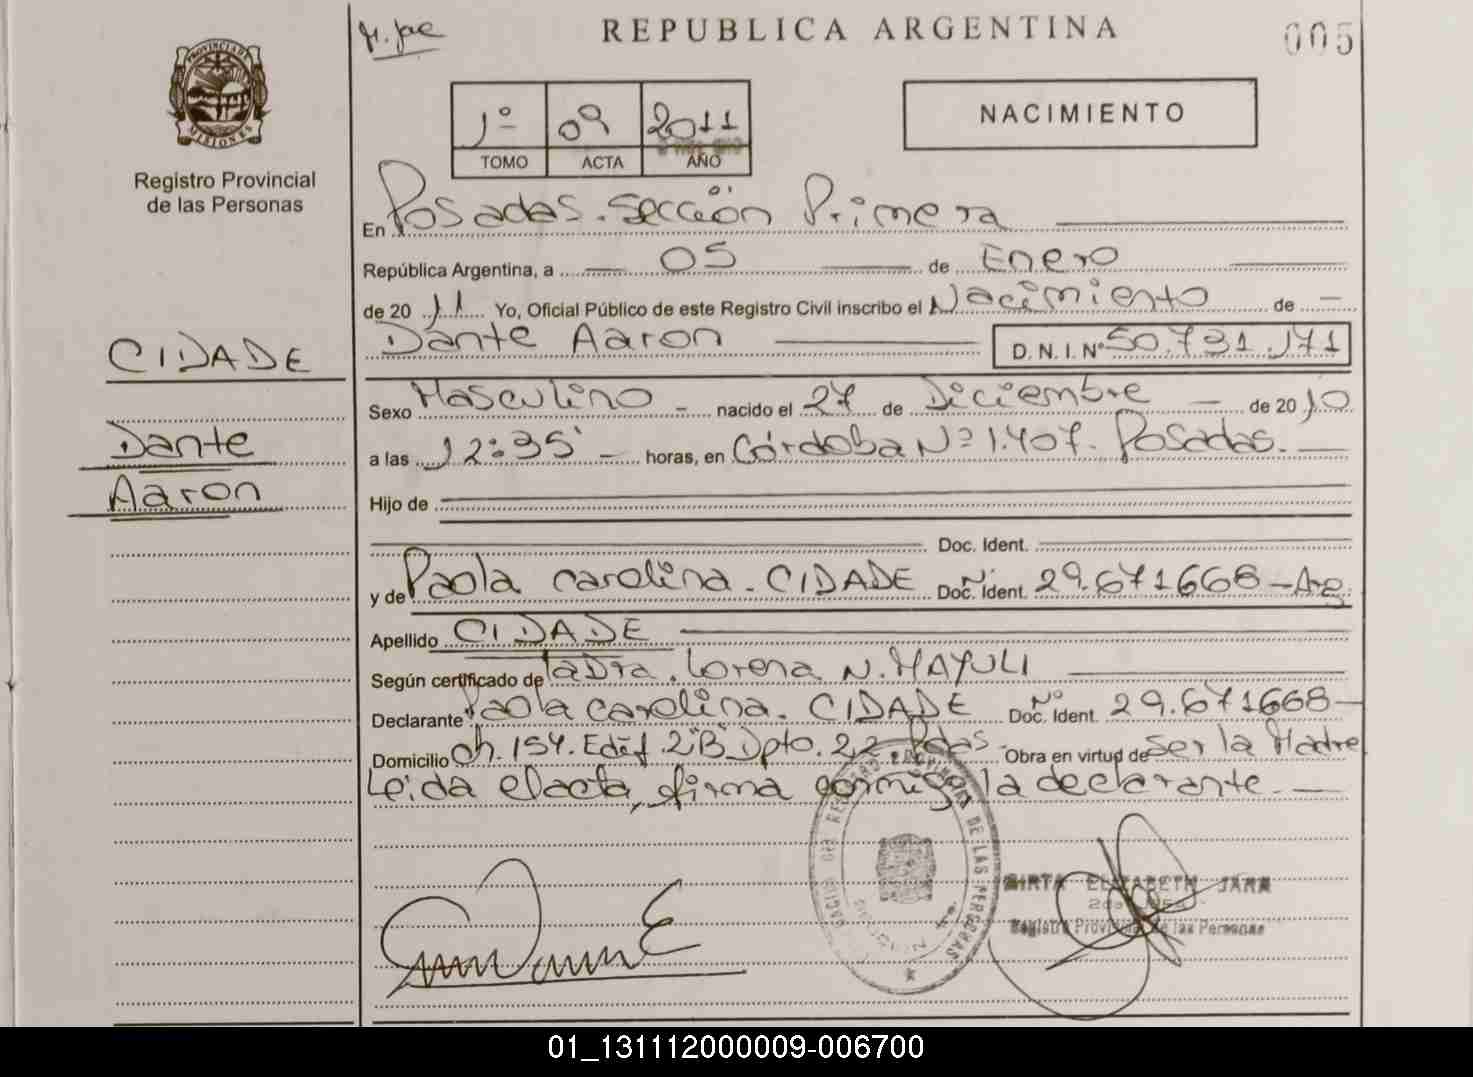 REPUBLICA ARGENTINA
005
PROVINCIA DE
MISIONES
Registro Provincial
de las Personas
1º 09 2011
TOMO ACTA AÑO
NACIMIENTO
En Posadas. Sección Primera
República Argentina, a 05 de Enero
de 20 11 Yo, Oficial Público de este Registro Civil inscribo el Nacimiento de
Dante Aaron D. N. I. Nº 50.731.171
CIDADE
Dante
Aaron
Sexo Masculino - nacido el 27 de Diciembre - de 20 10
a las 12:35' - horas, en Córdoba Nº 1.407. Posadas.
Hijo de
Doc. Ident.
y de Paola Carolina. CIDADE Doc. Ident. Nº 29.671668-Arg.
Apellido CIDADE
Según certificado de Lorena N. MAYULI
Declarante Paola Carolina. CIDADE Doc. Ident. Nº 29.671668-
Domicilio Ch. 154. Edif. 2"B" Dpto. 22 Pdas - Obra en virtud de Ser la Madre
Leida el acta, firma conmigo la declarante.
REGISTRO PROVINCIAL DE LAS PERSONAS
MIRTA ELIZABETH JARA
Registro Provincial de las Personas
01_131112000009-006700